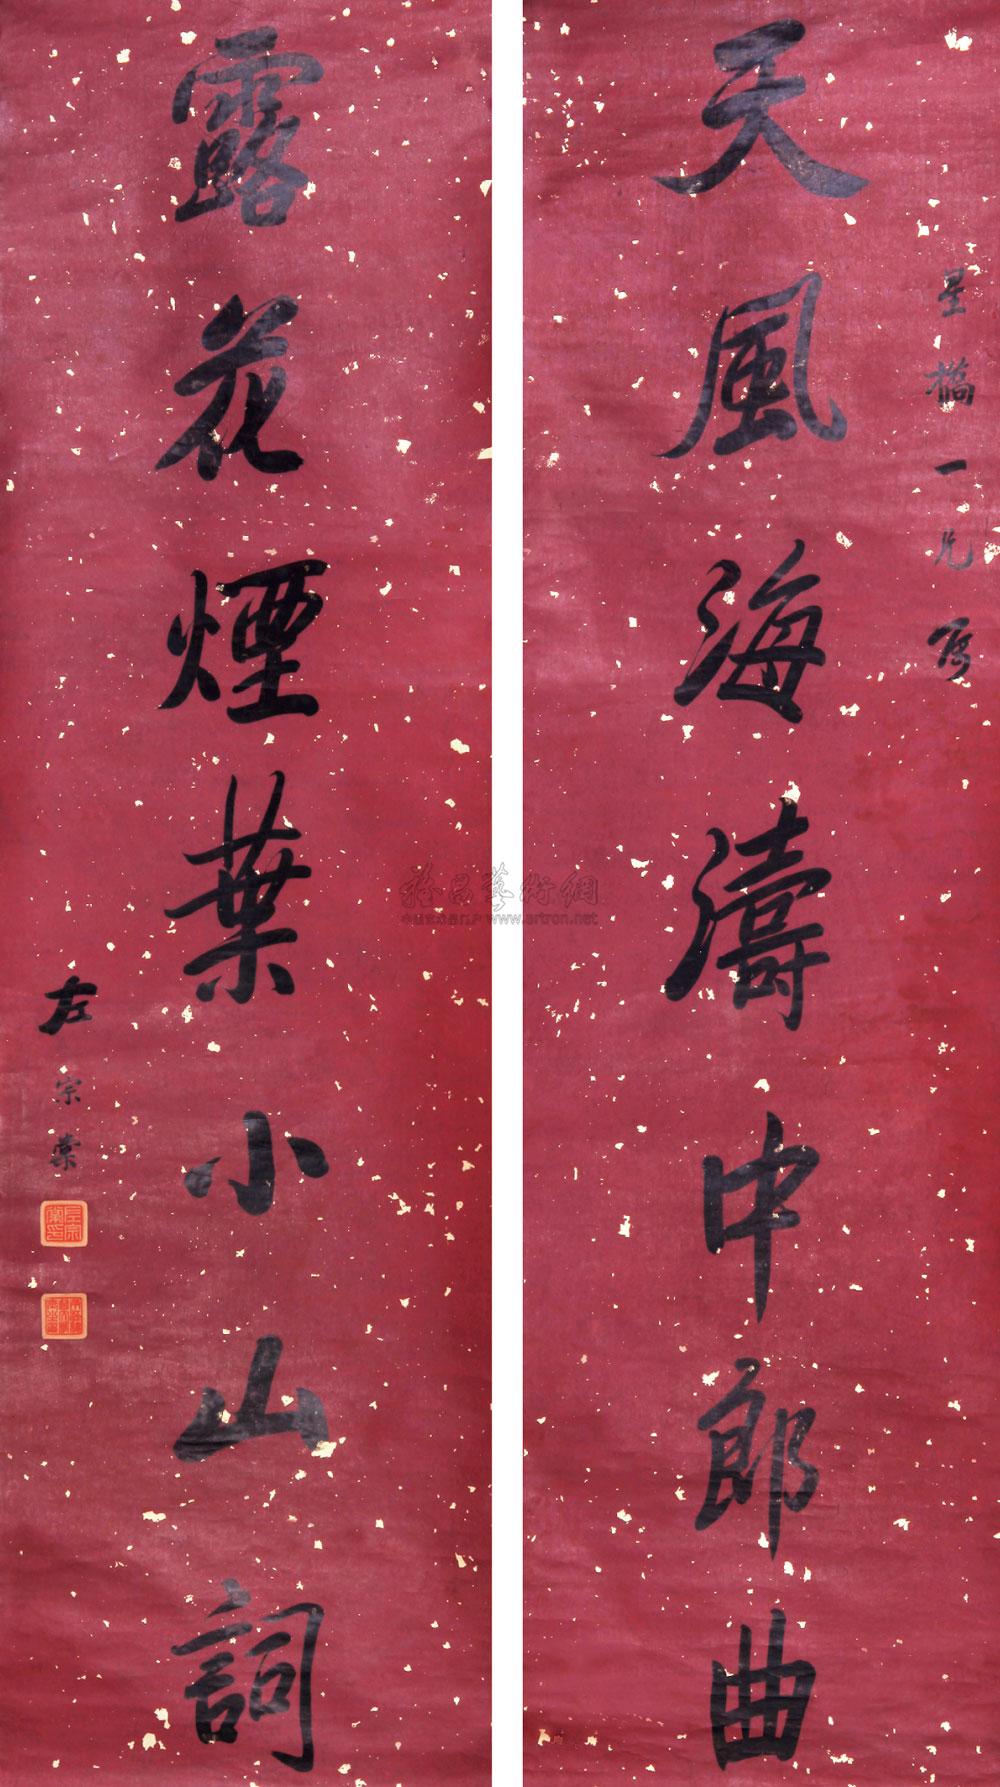 星橋一兄屬
天風海濤中郎曲
露花煙葉小山詞
左宗棠
左宗棠印
www.artron.net